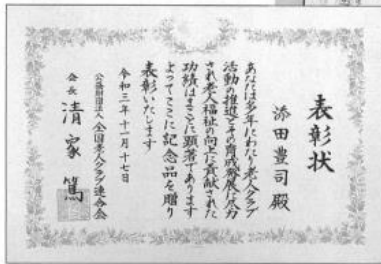 表彰状
添田豊司殿
あなたは多年にわたり老人クラブ
活動の推進とその育成発展に尽力
され老人福祉の向上に貢献された
功績はまことに顕著であります
よってここに記念品を贈り
表彰いたします
令和三年十一月十七日
公益財団法人全国老人クラブ連合会
会長 清家篤